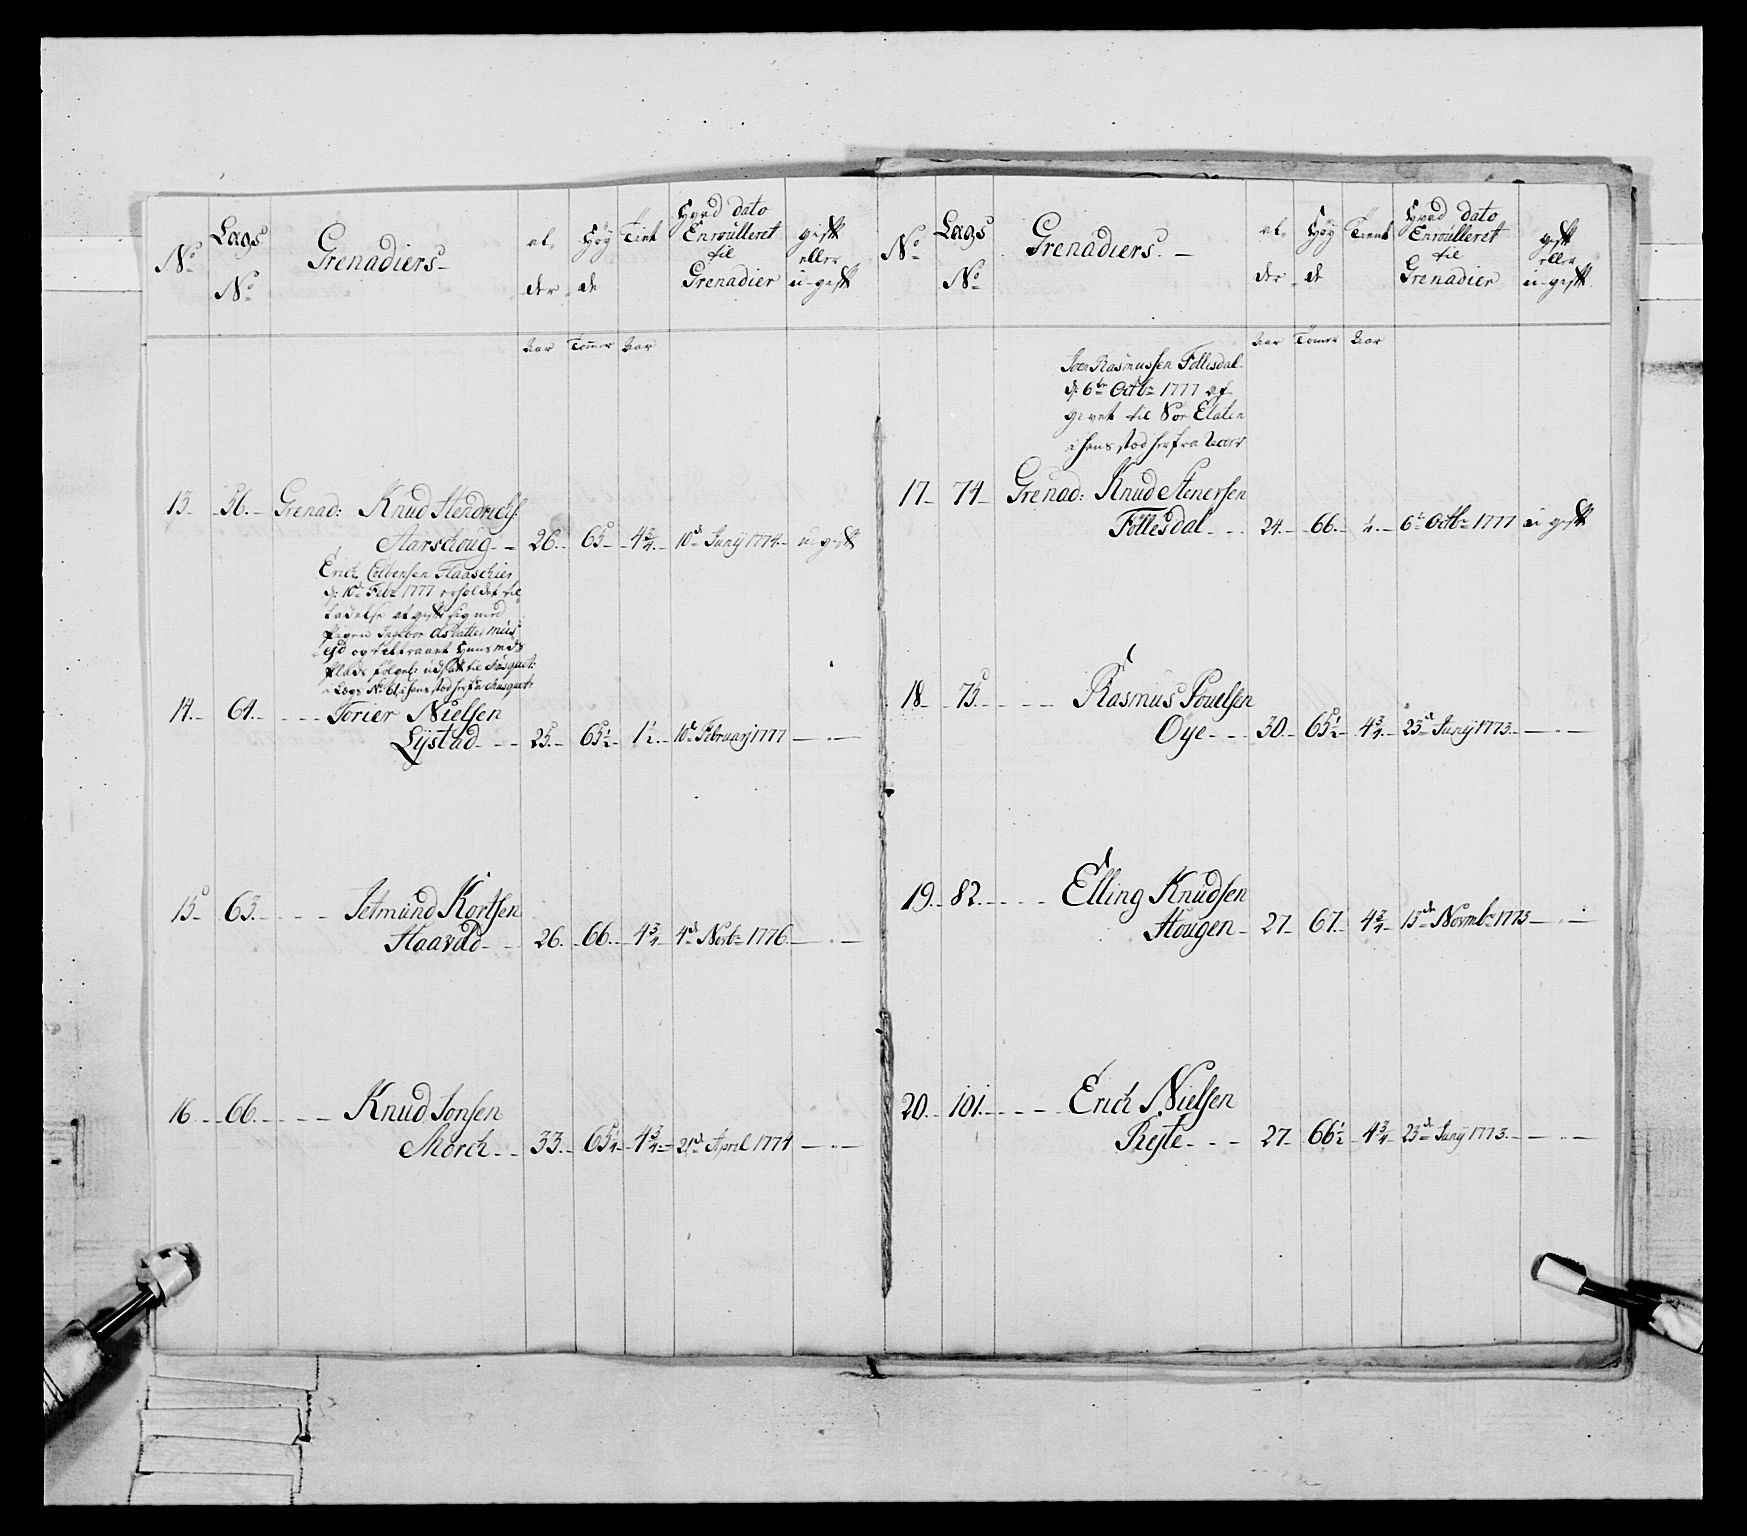 No Lægs No Grenadiers al- der Høy- de Tient Hvad dato Enroulleret til Grenadier gift eller u-gift
Aar Tomer Aar
13 56 Grenad: Knud Hendrichs:
Aarschoug 26 65 4 3/4 10de Junij 1774 u-gift
Erich Colbensen Flaaschier
d: 10de Febr 1777 erholdet til
ladelse at gifte sig med
Pigen Ingebor
og tiltraadt Huusmds
Plads følgel: udsatt til Musquet:
i Lægs No 61, i hans stæd herfra Musquet:
14 64 Torier Nielsen
Lystad 25 65 1/2 1 1/2 10de Februarj 1777
15 63 Setmund Kortsen
Haavold 26 66 4 3/4 4de Novbr 1776
16 66 Knud Jonsen
Morch 33 65 1/4 4 3/4 21de April 1774
No Lægs No Grenadiers al- der Høy- de Tient Hvad dato Enroulleret til Grenadier gift eller u-gift
Aar Tomer Aar
Iver Rasmussen Follesdal
d: 6te Octbr 1777 af
givet til Etaten
i hans stæd herfra
17 74 Grenad: Knud Stenersen
Follesdal 24 66 1/4 6te Octbr 1777 u-gift
18 75 Rasmus Pouelsen
Oye 30 65 1/2 4 3/4 23de Junij 1773
19 82 Elling Knudsen
Hougen 27 67 4 3/4 15de Novmbr 1773
20 101 Erich Nielsen
Rejte 27 66 1/2 4 3/4 23de Junij 1773